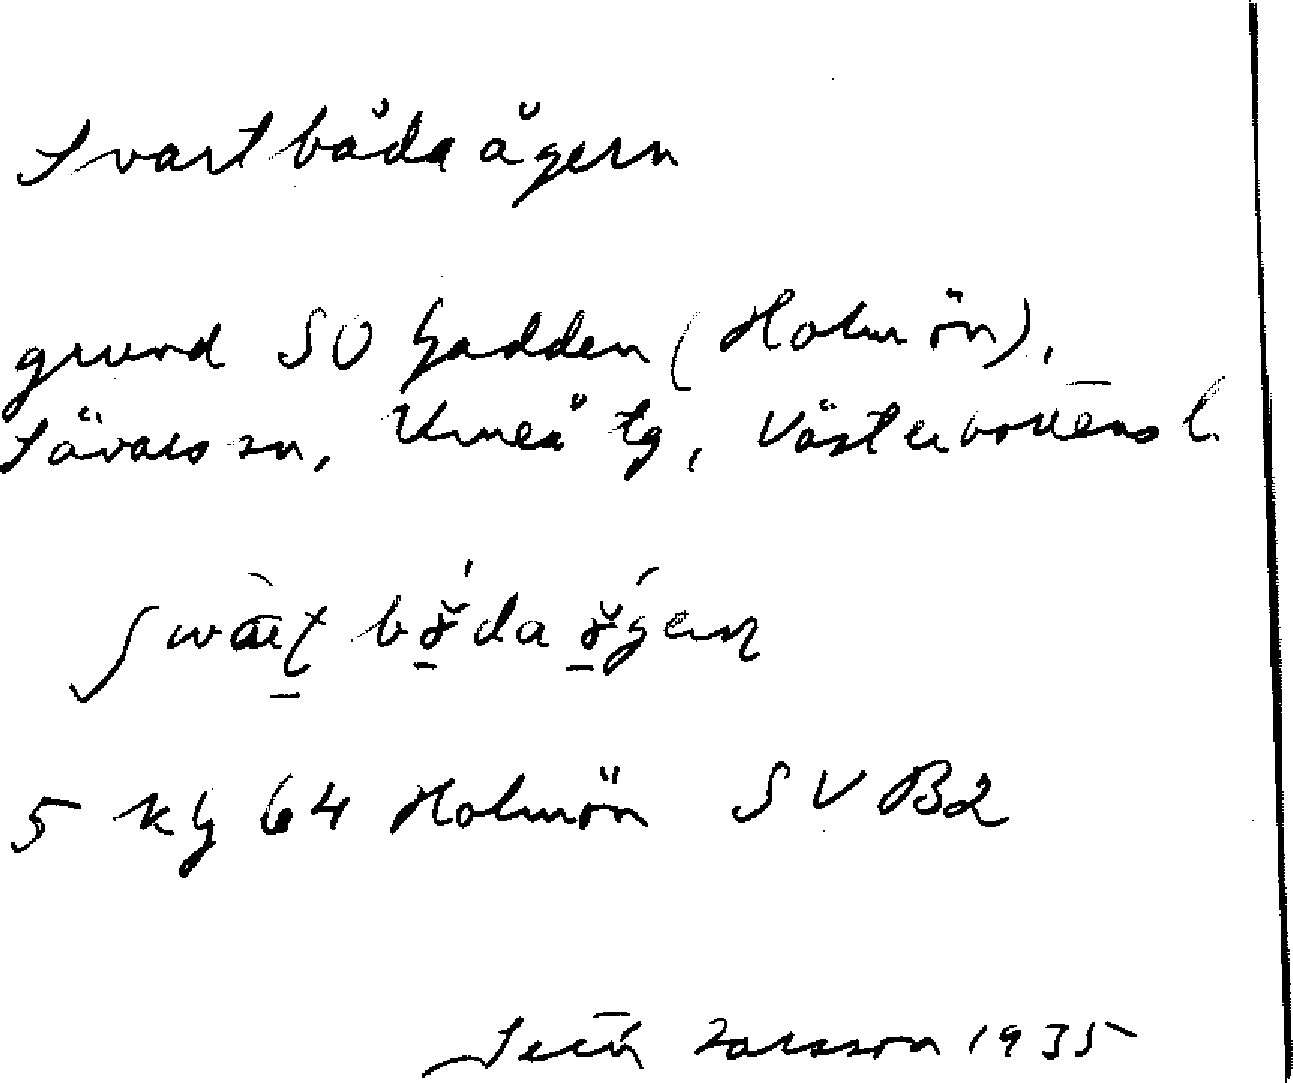 Svartbådaågern
grund SO Gadden (Holmön),
Sävars sn, Umeå tg, Västerbottens l.
5 kg 64 Holmön SV B2
Larsson 1935